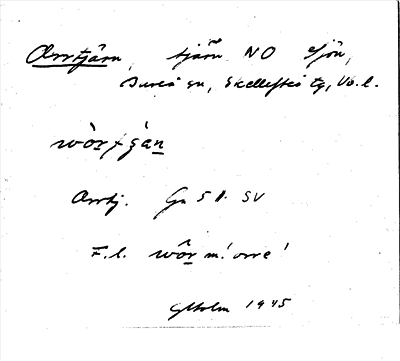 Orrtjärn, tjärn NO sjön,
Bureå sn, Skellefteå tg, Vb. l.
Orrtj. Gs 51 SV
F. l. m. 'orre'
GHolm 1945